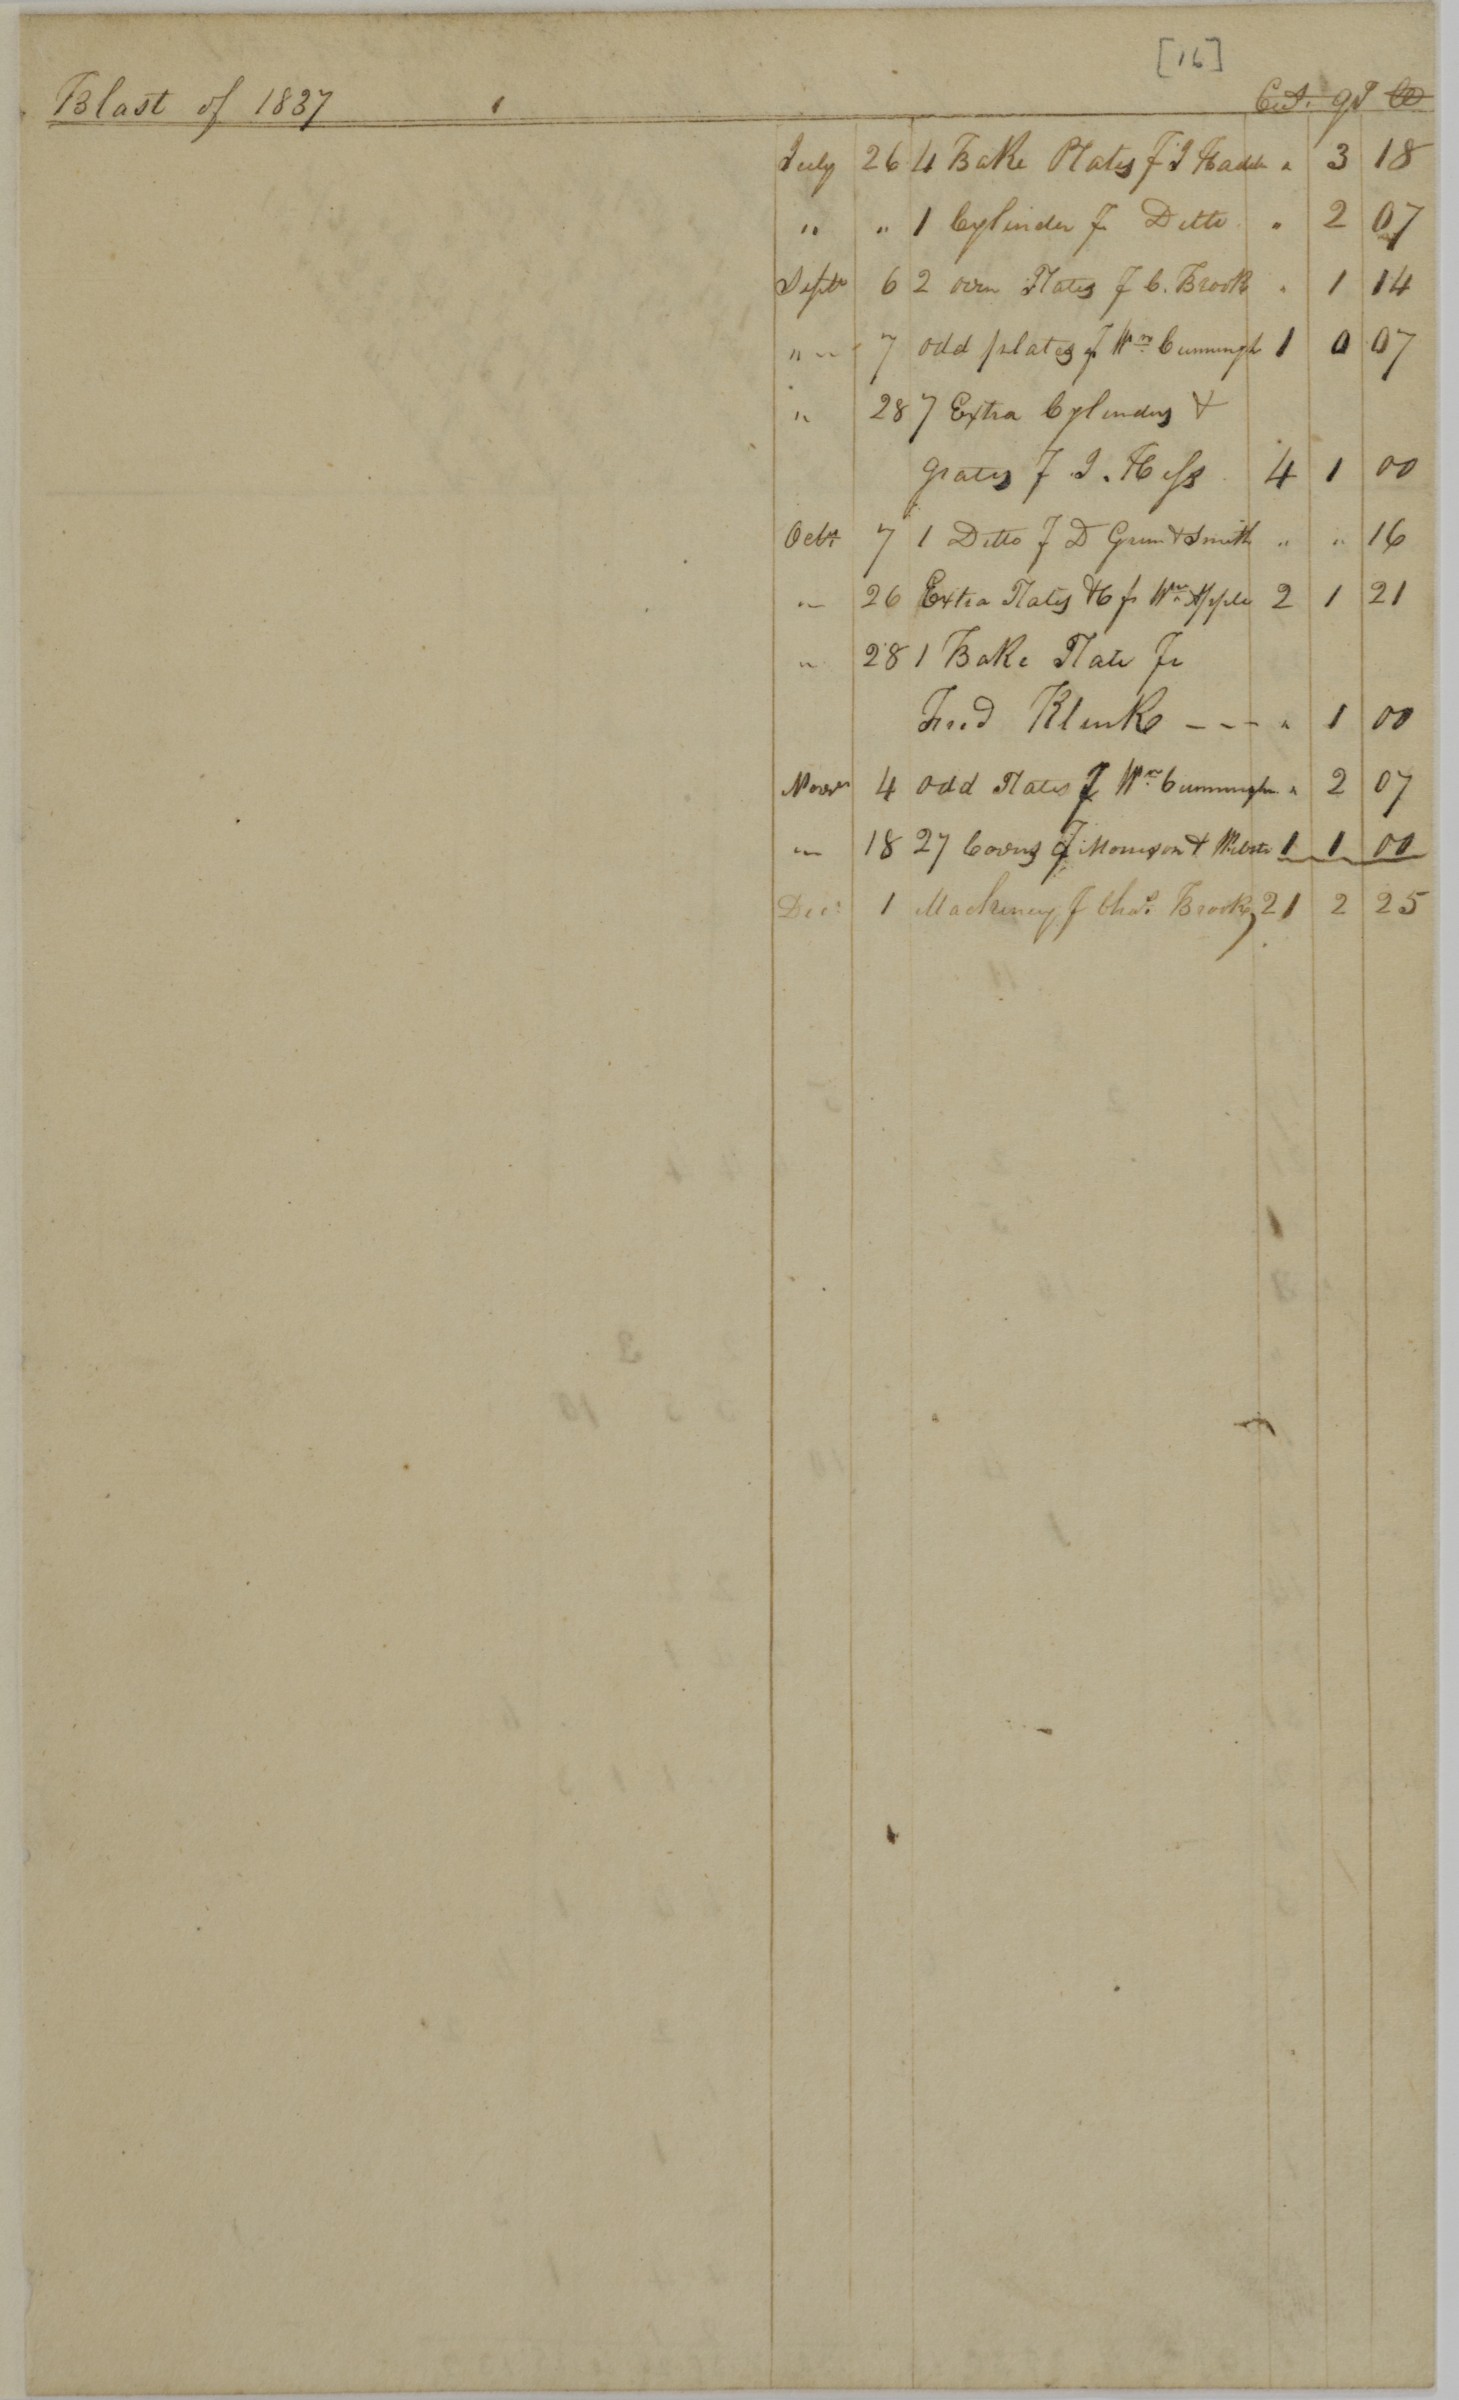 [16]
Blast of 1837 Cwt. qr lb
July 26 4 Bake Plates f J Hadde " 3 18
" " 1 Cylinder f Ditto " 2 07
Septr 6 2 oven Plates f C. Brook " 1 14
" " 7 odd plates f Wm Cunningh 1 0 07
" 28 7 Extra Cylinders &
grates f J. Hess 4 1 00
Octr 7 1 Ditto f D Green & Smith " " 16
" 26 Extra Plates &c fr Wm Apple 2 1 21
" 28 1 Bake Plate fr
Fred Klinke - - - " 1 00
Novr 4 odd Plates f Wm Cunningha " 2 07
" 18 27 Covers f Morrison & Webste 1 1 00
Decr 1 Machinery f Chas. Brooke 21 2 25